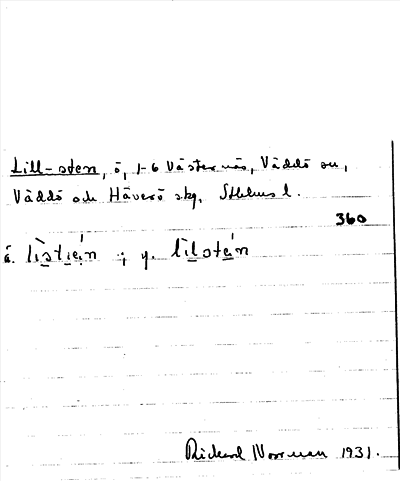 Lill-sten, ö, 1-6 Västernäs, Väddö sn,
Väddö och Häverö skg, Sthlms l.
360
ä. listiẹn ; y. lilstẹn
Rickard Norrman 1931.